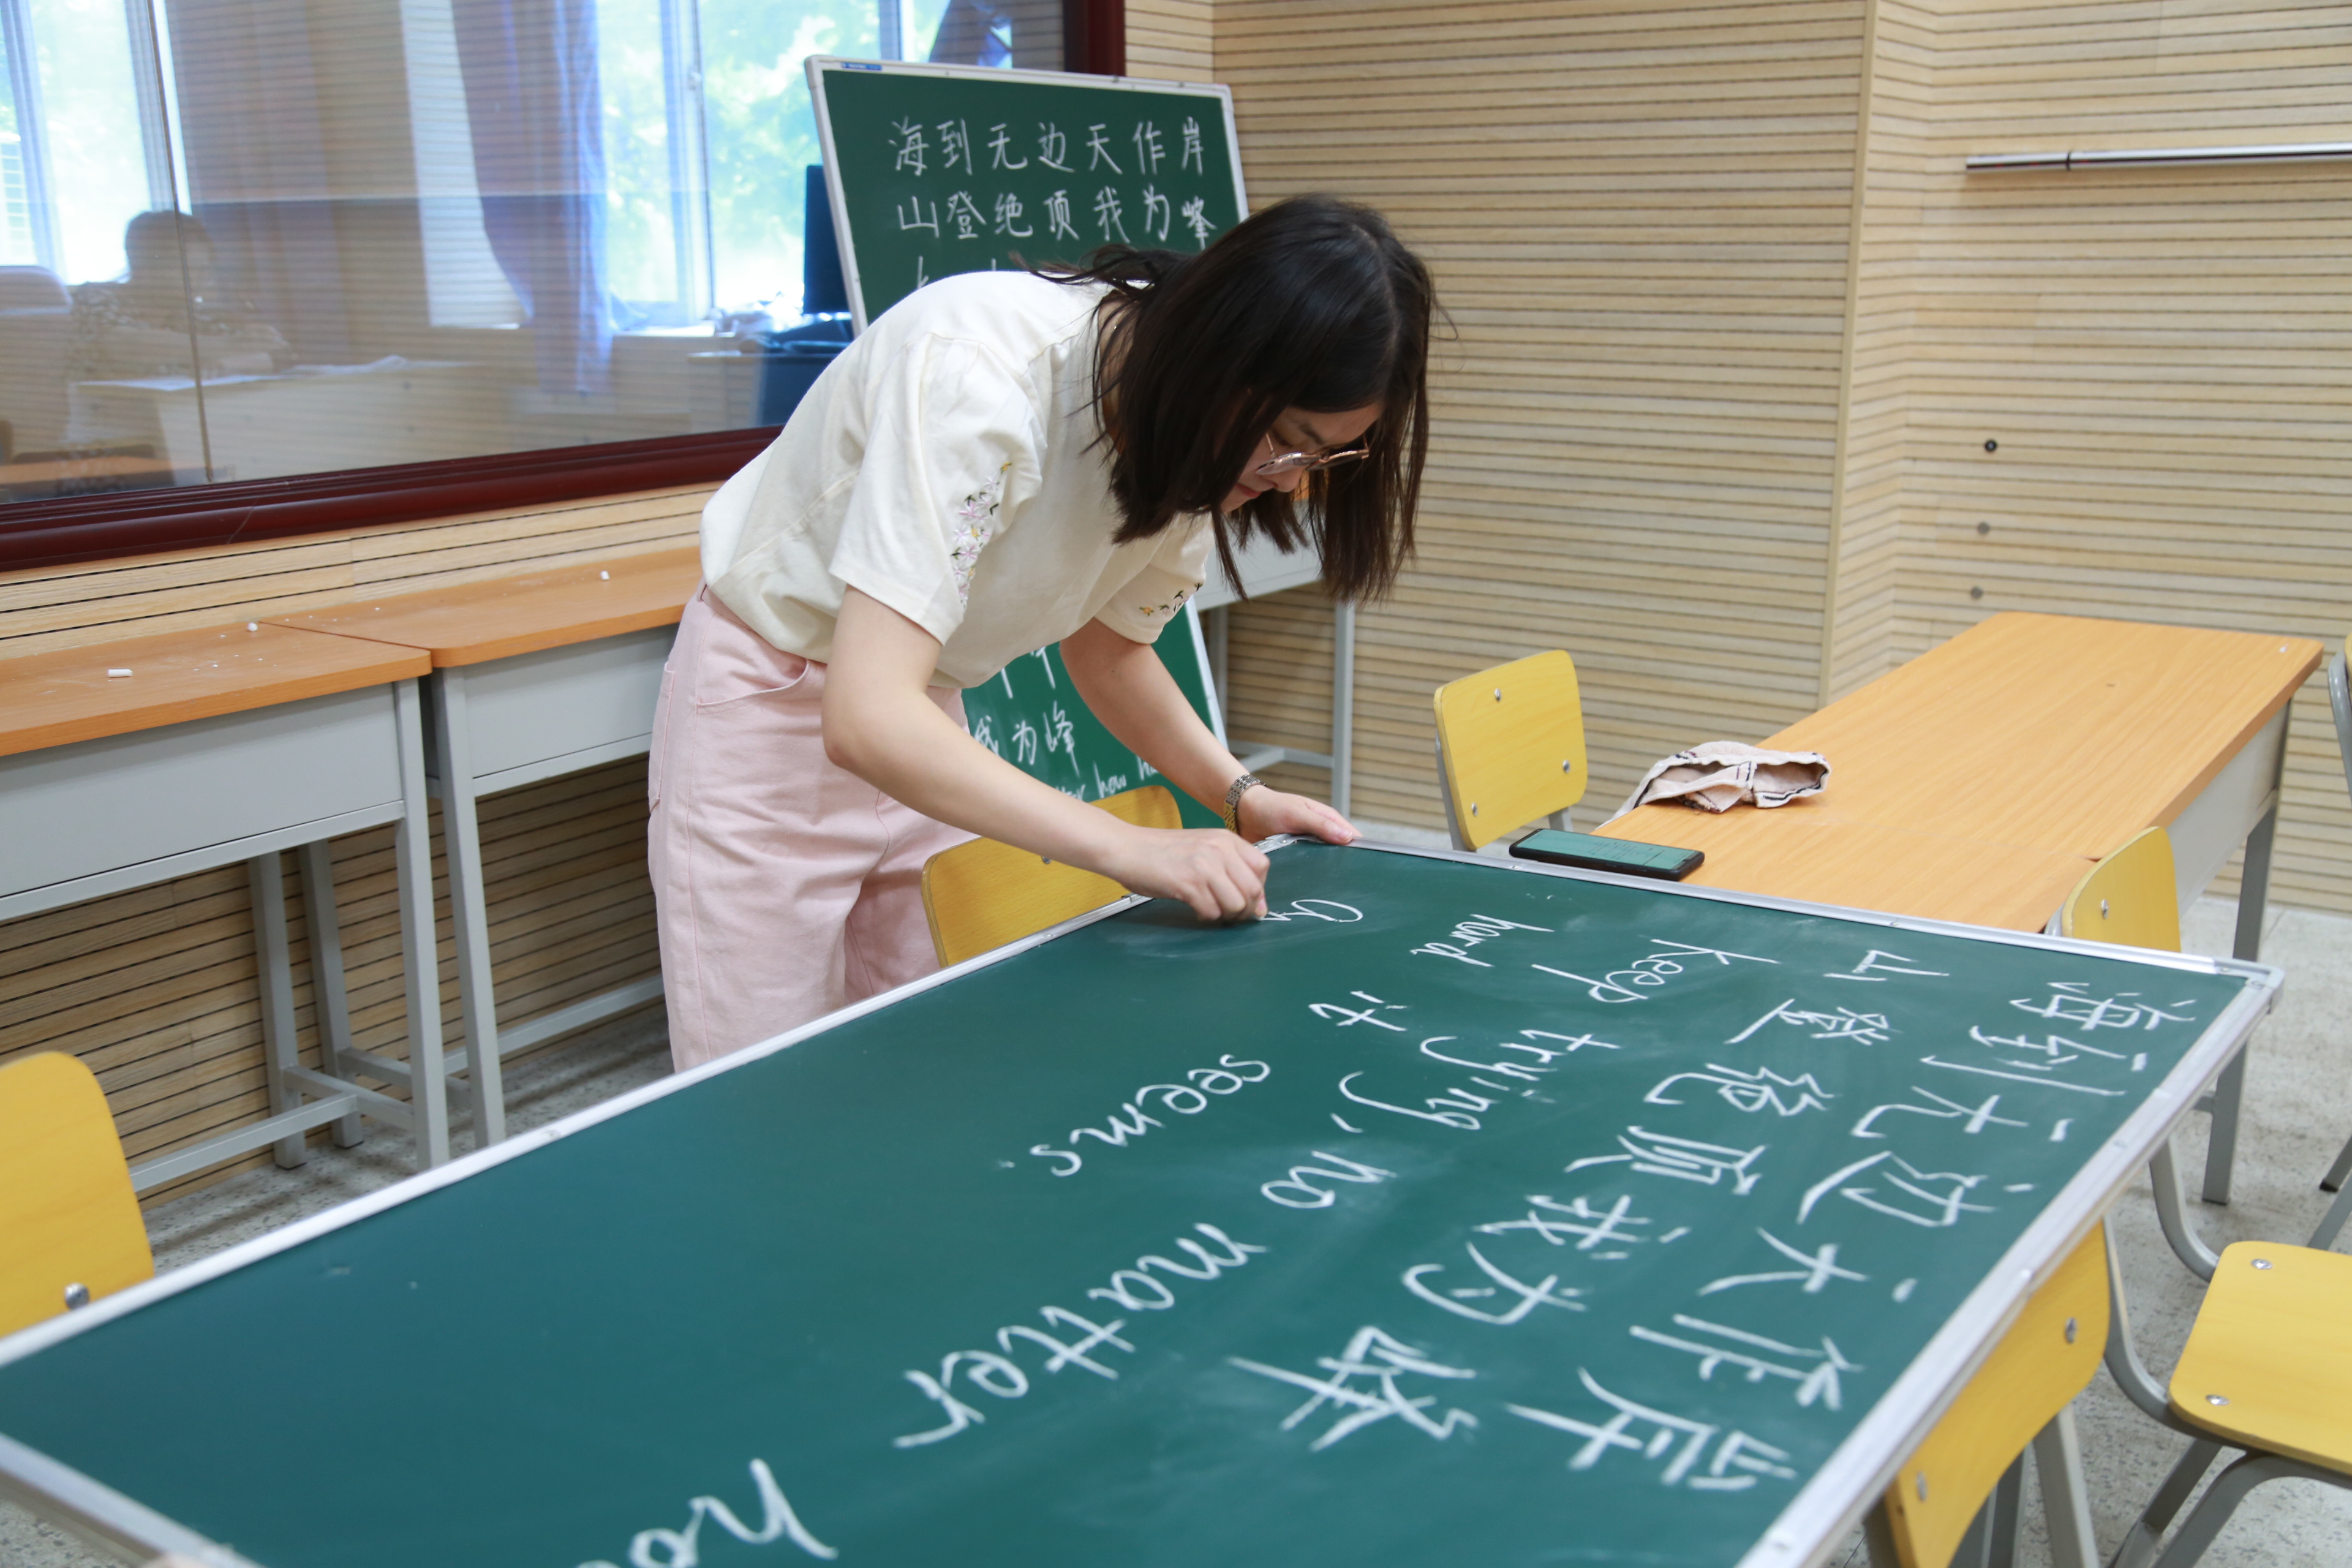 海到无边天作岸
山登绝顶我为峰
我为峰
how
海到无边天作岸
山登绝顶我为峰
Keep trying, no matter ho
hard it seems.